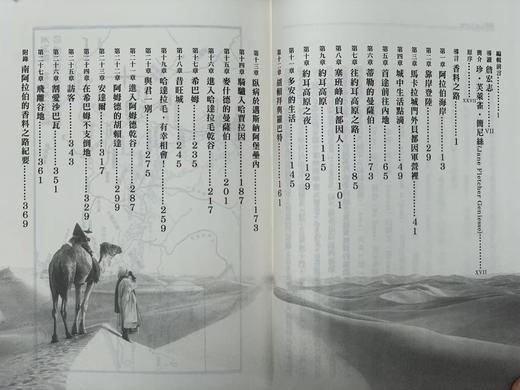 編輯前言……I
導讀 詹宏志……VII
簡介 珍・芙萊雀・簡尼絲(Jane Fletcher Geniesse)……XVII
原序……XXVII
導言 香料之路……1
第一章 阿拉伯海岸……13
第二章 靠岸登陸……29
第三章 馬卡拉城門外貝都因軍營裡……41
第四章 城中生活點滴……49
第五章 首途前往內地……65
第六章 蒂勒的曼薩伯……73
第七章 往約耳高原之路……85
第八章 塞班峰的貝都因人……101
第九章 約耳高原……115
第十章 約耳高原之夜……129
第十一章 多安的生活……145
第十二章 羅巴特……161
第十三章 臥病於邁斯納阿堡壘內……173
第十四章 騎驢入哈賈拉因……187
第十五章 麥什德的曼薩伯……201
第十六章 進入哈達拉毛乾谷……217
第十七章 希巴姆……235
第十八章 昔旺城……245
第十九章 哈達拉毛，有幸相會！……259
第二十章 與君一別……275
第二十一章 進入阿姆德乾谷……287
第二十二章 阿姆德的胡賴達……299
第二十三章 安達爾……317
第二十四章 在希巴姆不支倒地……329
第二十五章 訪客……343
第二十六章 割愛沙巴瓦……351
第二十七章 飛離谷地……361
附錄 南阿拉伯的香料之路紀要……369